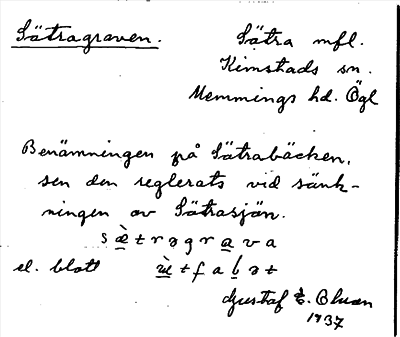 Sätragraven.
Sätra mfl.
Kimstads sn.
Memmings hd. Ögl
Benämningen på Sätrabäcken,
sen den reglerats vid sänk-
ningen av Sätrasjön.
s æ̀ t r ə g r a v a
el. blott
Gustaf E.
1937